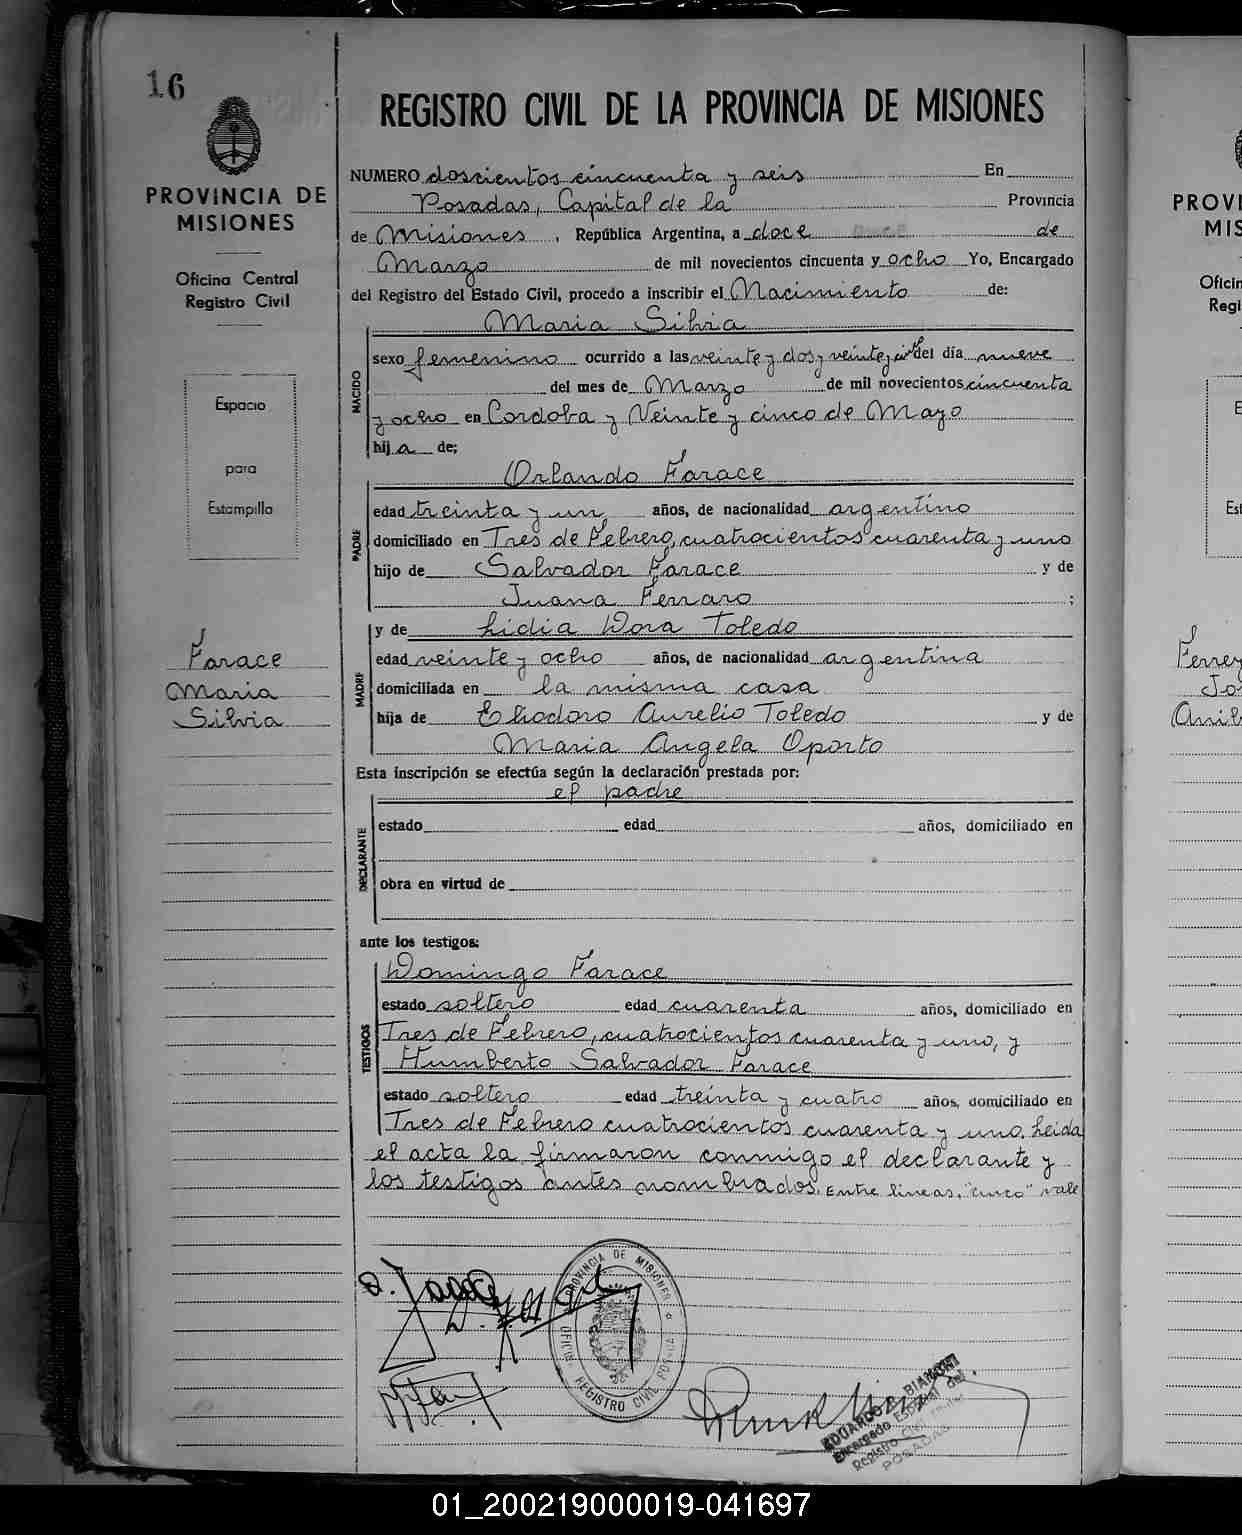 16
PROVINCIA DE
MISIONES
Oficina Central
Registro Civil
Espacio
para
Estampilla
Farace
Maria
Silvia
REGISTRO CIVIL DE LA PROVINCIA DE MISIONES
NUMERO doscientos cincuenta y seis En
Posadas, Capital de la Provincia
de Misiones, República Argentina, a doce de
Marzo de mil novecientos cincuenta y ocho Yo, Encargado
del Registro del Estado Civil, procedo a inscribir el Nacimiento de:
Maria Silvia
NACIDO
sexo femenino ocurrido a las veinte y dos y veinte y cinco del día nueve
del mes de Marzo de mil novecientos cincuenta
y ocho en Cordoba y Veinte y cinco de Mayo
hija de;
Orlando Farace
PADRE
edad treinta y un años, de nacionalidad argentino
domiciliado en Tres de Febrero, cuatrocientos cuarenta y uno
hijo de Salvador Farace y de
Juana Ferraro ;
y de Lidia Dora Toledo
MADRE
edad veinte y ocho años, de nacionalidad argentina
domiciliada en la misma casa
hija de Eliodoro Aurelio Toledo y de
Maria Angela Oporto
Esta inscripción se efectúa según la declaración prestada por:
el padre
DECLARANTE
estado edad años, domiciliado en
obra en virtud de
ante los testigos:
Domingo Farace
TESTIGOS
estado soltero edad cuarenta años, domiciliado en
Tres de Febrero, cuatrocientos cuarenta y uno, y
Humberto Salvador Farace
estado soltero edad treinta y cuatro años, domiciliado en
Tres de Febrero cuatrocientos cuarenta y uno. Leida
el acta la firmaron conmigo el declarante y
los testigos antes nombrados. Entre lineas, "cinco" vale
PROVINCIA DE MISIONES
OFICINA REGISTRO CIVIL POSADAS
EDUARDO P. BIANCHI
Encargado Especial del
Registro Civil
POSADAS
PROVI
MIS
Oficin
Regi
E
Est
Ferrey
Jo
Anib
01_200219000019-041697